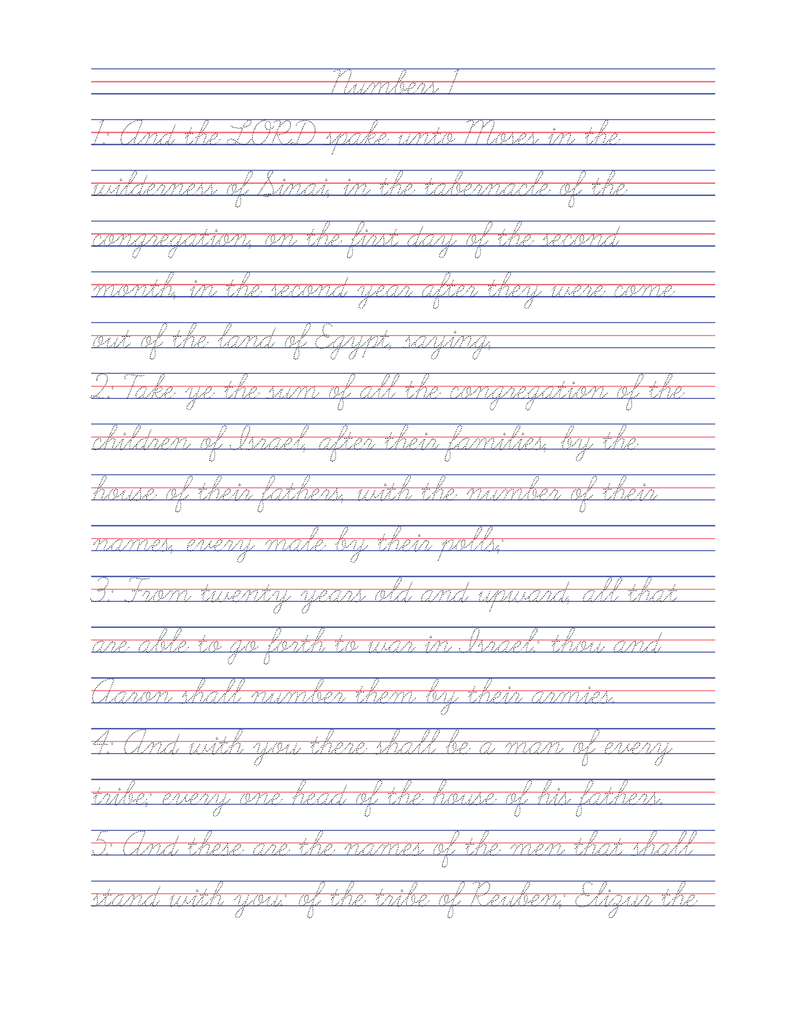 Numbers 1
1: And the LORD spake unto Moses in the
wilderness of Sinai, in the tabernacle of the
congregation, on the first day of the second
month, in the second year after they were come
out of the land of Egypt, saying,
2: Take ye the sum of all the congregation of the
children of Israel, after their families, by the
house of their fathers, with the number of their
names, every male by their polls;
3: From twenty years old and upward, all that
are able to go forth to war in Israel: thou and
Aaron shall number them by their armies.
4: And with you there shall be a man of every
tribe; every one head of the house of his fathers.
5: And these are the names of the men that shall
stand with you: of the tribe of Reuben; Elizur the